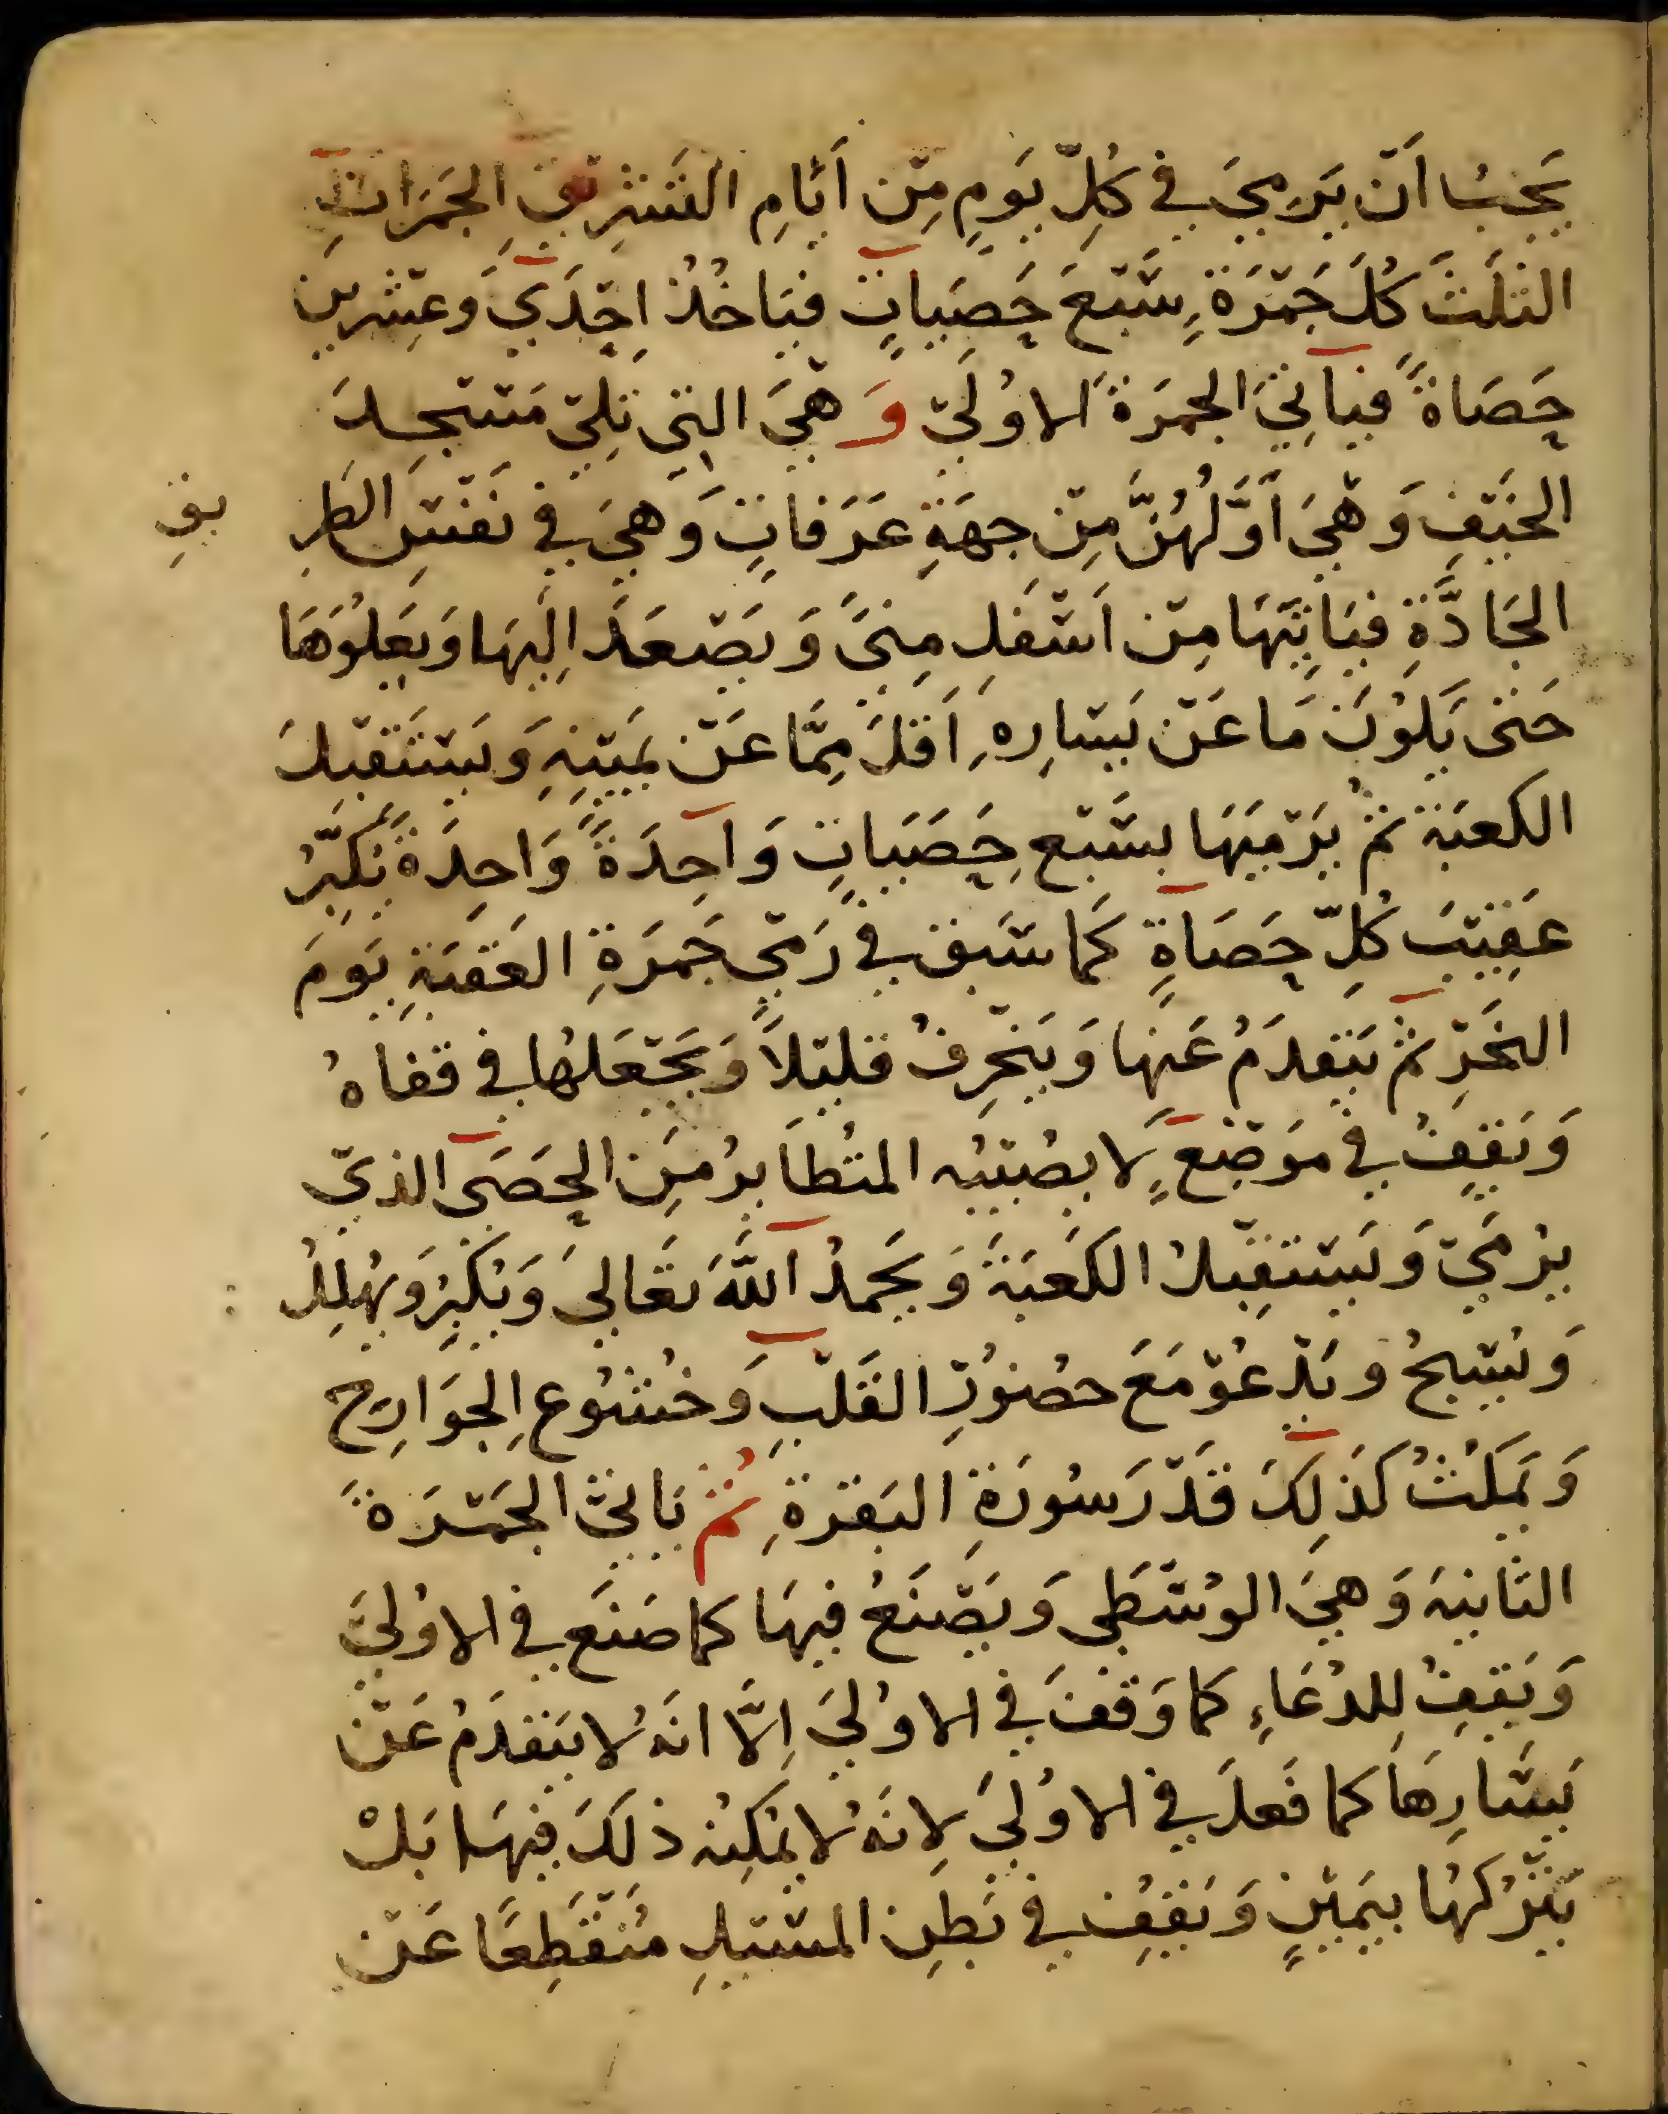 يَجِبُ أَنْ يَرمِيَ في كُلِّ يَومٍ مِنْ أَيَّامِ التَشرِيْقِ الجَمَرَاتِ
الثلَثَ كُلَ جَمْرَةٍ سَبْعَ حَصَيَاتٍ فيَاخُذُ اِحْدَي وَعِشرين
حَصَاةً فيَاتِيَ الجمرَةَ الاوُلَيْ وَهْيَ التِي تَلِيْ مَسْجِدَ
الخَيْفِ وَهْيَ أوَّلُهُنَّ مِنْ جهَةِ عَرَفاتٍ وَهيَ في نَفْسِ الطَرِ يقِ
الجَادَّةِ فيَاتِيَهَا مِنْ اَسْفلِ مِنيً وَيَصْعَدَ اِلَيهَا وَيَعلوُهَا
حَتى يَكوُنَ مَا عَنْ يَسَارِهِ اَقلَ مِمَّا عَنْ يَمِيْنِهِ وَيَسْتَقْبِلَ
الكعبَة ثمُ يَرْمِيَهَا بسَبْعِ حَصَيَاتٍ وَاحِدَةً وَاحِدَةً يُكَبِّرُ
عَقِيْبَ كُلِّ حَصَاةٍ كَما سَبَق في رَمْيِ جَمرَةِ العَقبَةِ يَومَ
النَحْرِ ثمُ يَتَقدَمُ عَنهَا وَيَنْحَرِفُ قليْلاً وَيَجْعَلهُا في قفاهُ
وَيَقِفُ في مَوْضِعٍ لَا يصُيْبُه المتُطَايرُ مَِن الحَصَى الذيْ
يرُمَيْ وَيَسْتقِبْلُ الكَعبَةَ وَيَحمدُ اللَّهَ تَعَالىَ وَيُكبِرُ وَيُهلِلُ
وَيُسَبحُ وَيَدْعُوْ مَعَ حضُوُرِ القَلْبِ وَخُشُوُعِ الجَوَارِح
وَيَمكَثُ كَذلِكَ قَدْرَ سُورَةِ البَقرةِ ثمُ يَاتيَ الجَمْرَةَ
الثَانيَةَ وَهيَ الوُسْطَى وَيَصْنَعُ فيهَا كما صَنَعَ في الاوُليَ
وَيَقِفُ لِلدُعَاءِ كما وَقفَ في الاوُلىَ اِلَّا انَهُ لا يَتَقدَمُ عَنْ
يَسَارِهَا كما فَعلَ في الاوُلىَ لانَهُ لا يمُكِنُه ذلَكَ فيهَا بَلْ
يَتْرُكهُا بيَمِيْنٍ وَيَقِفُ في بَطِن المسَيْلِ مُنْقَطِعًا عَنْ